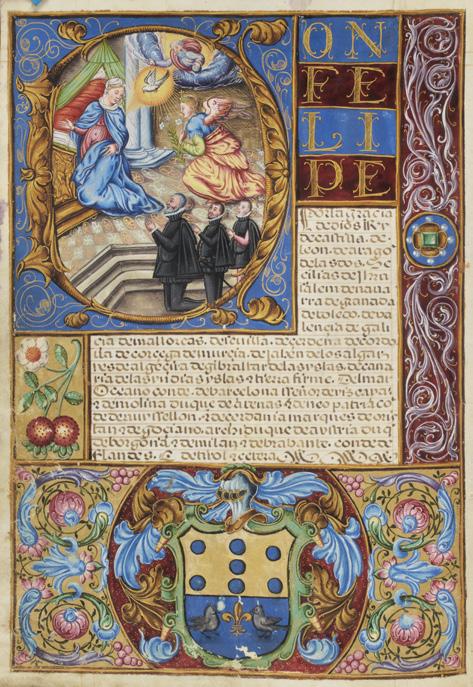 ON
FE
LI
PE
Por la gracia
de dios Rey
de castilla. de
leon. de arago
de las dos. Se
cilias de Jeru
salem de nava
rra de granada
de toledo. de va
lencia de gali
cia de mallorcas. de sevilla. de cerdeña de cordo
va de corcega de murcia. de Jahen de los algar
ves de algezira de gibraltar de las yslas. de cana
ria de las yndias yslas. & tierra firme. Del mar
Oceano conde. de barcelona señor de vizcaya
& de molina duque de athenas & de neo patria co
nde de ruysellon. & de cerdania marques de oris
tan & de gociano. archiduque de austria du q
de borgoña & de milan & de brabante. conde de
flandes. & de tirol & cetera